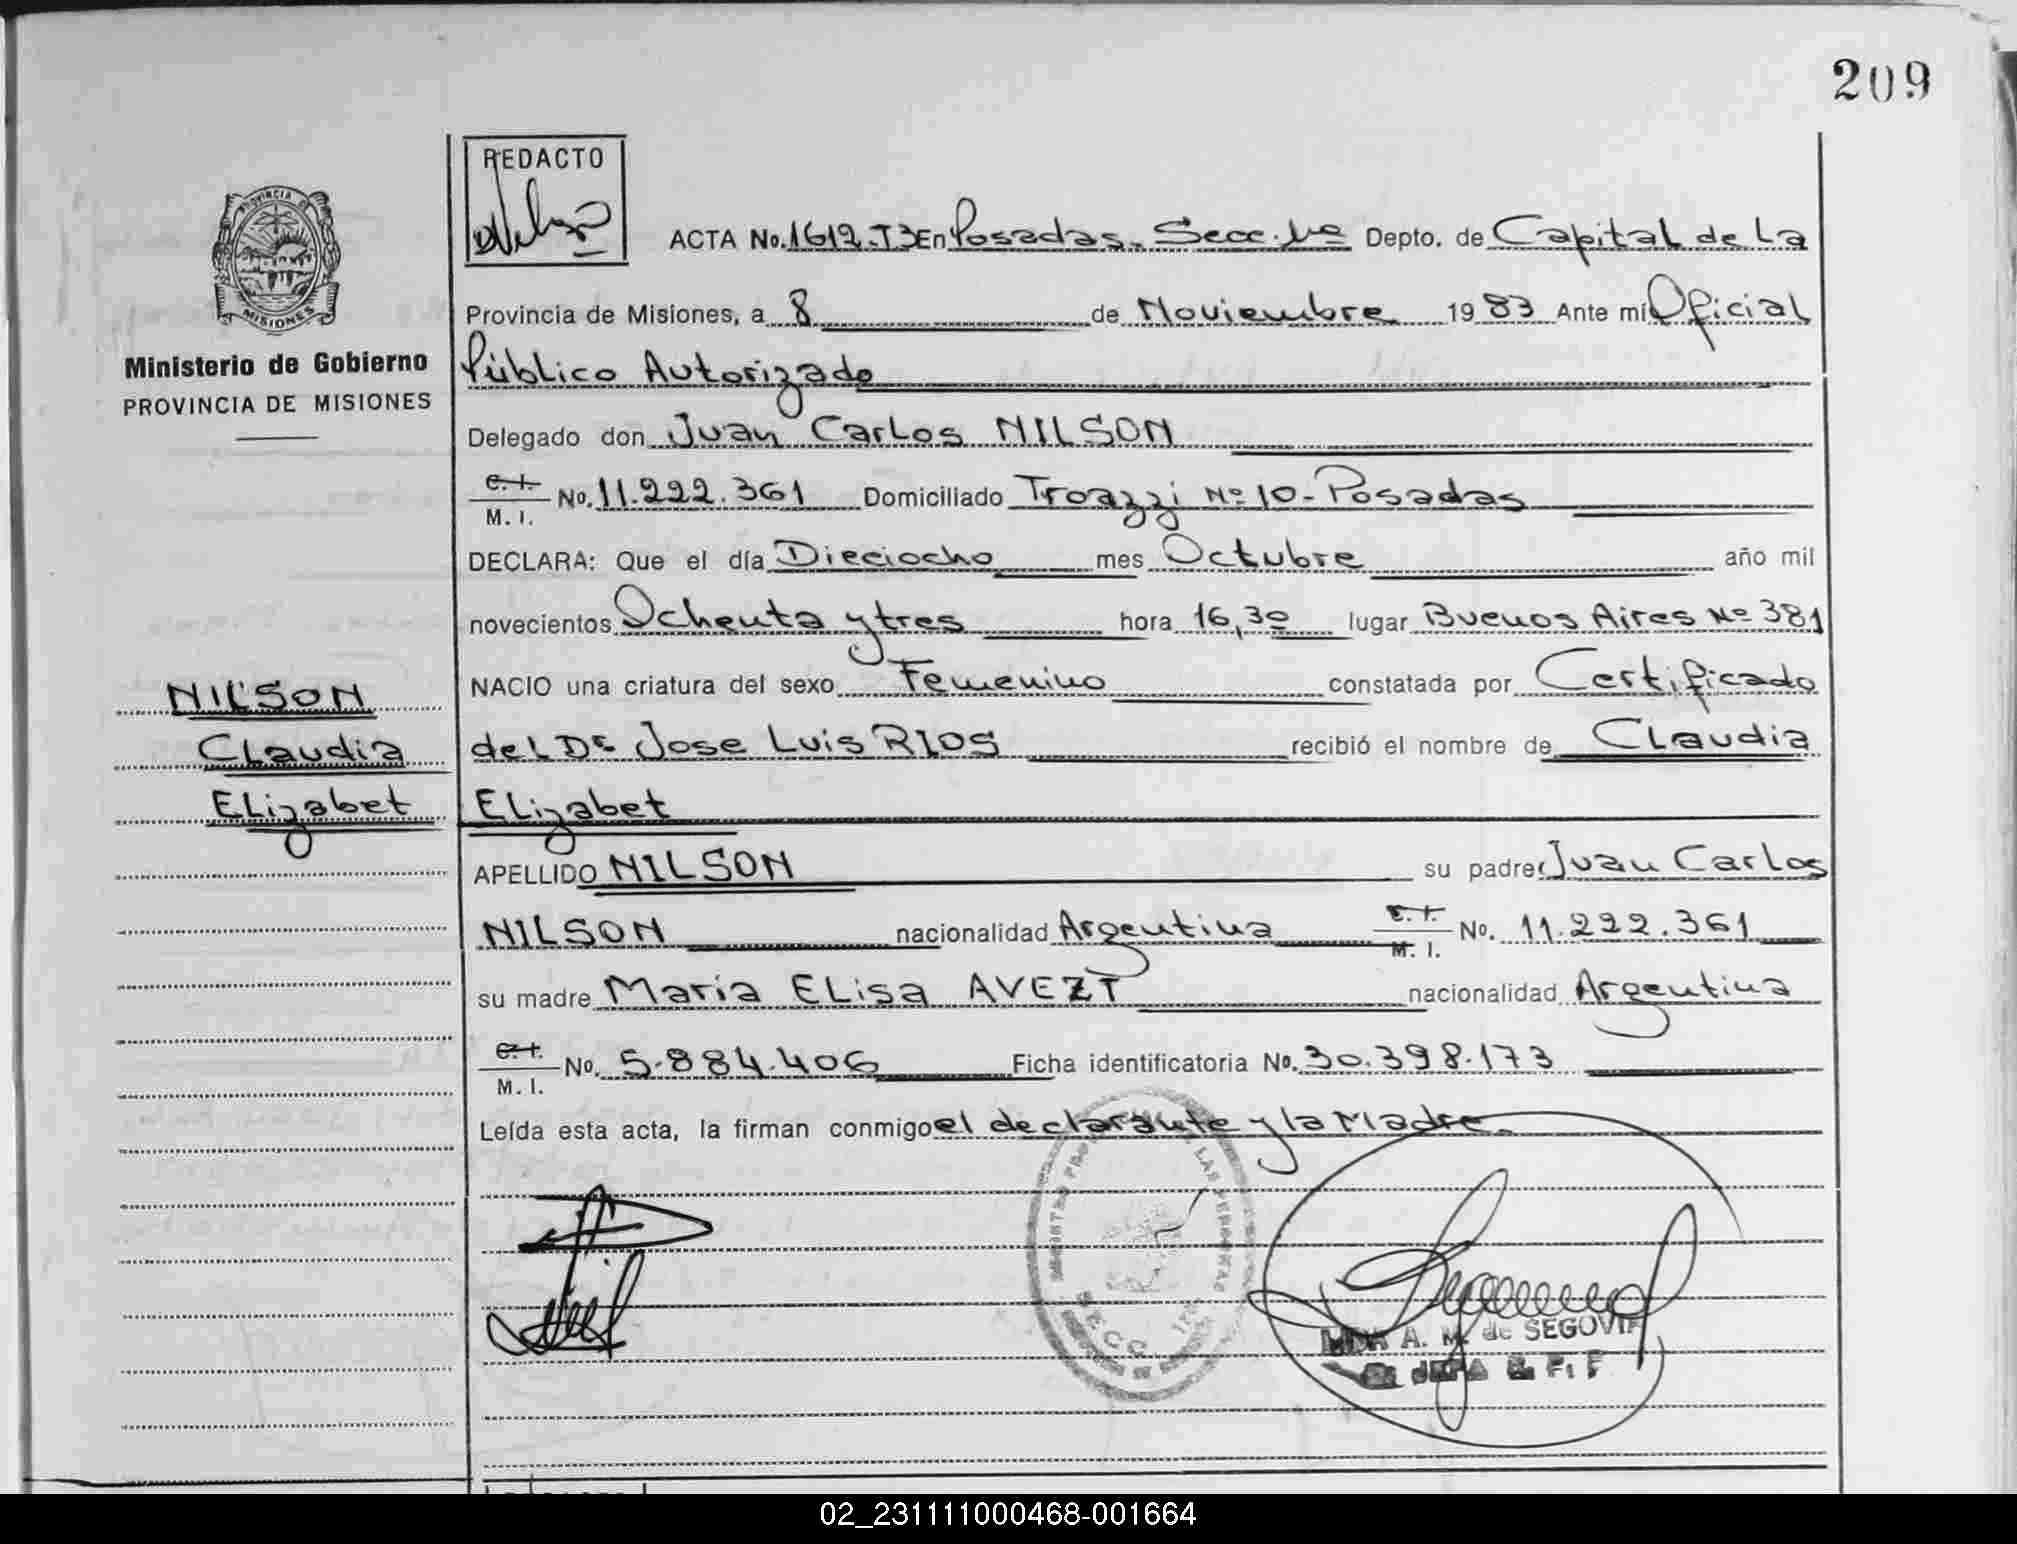 209
REDACTO
PROVINCIA DE
MISIONES
Ministerio de Gobierno
PROVINCIA DE MISIONES
ACTA No. 1612.T3 En Posadas. Secc. 1ra Depto. de Capital de La
Provincia de Misiones, a 8 de Noviembre 1983 Ante mi Oficial
Público Autorizado
Delegado don Juan Carlos NILSON
C. I. M. I. No. 11.222.361 Domiciliado Troazzi Nº 10 - Posadas
DECLARA: Que el día Dieciocho mes Octubre año mil
novecientos Ochenta y tres hora 16,30 lugar Buenos Aires Nº 381
NACIO una criatura del sexo Femenino constatada por Certificado
del Dr Jose Luis RIOS recibió el nombre de Claudia
Elizabet
NILSON
Claudia
Elizabet
APELLIDO NILSON su padre Juan Carlos
NILSON nacionalidad Argentina C. I. M. I. No. 11.222.361
su madre María Elisa AVEZT nacionalidad Argentina
C. I. M. I. No. 5.884.406 Ficha identificatoria No. 30.398.173
Leída esta acta, la firman conmigo el declarante y la Madre.
LAS PERSONAS
SECC. 1ra
A. M. de SEGOVIA
02_231111000468-001664